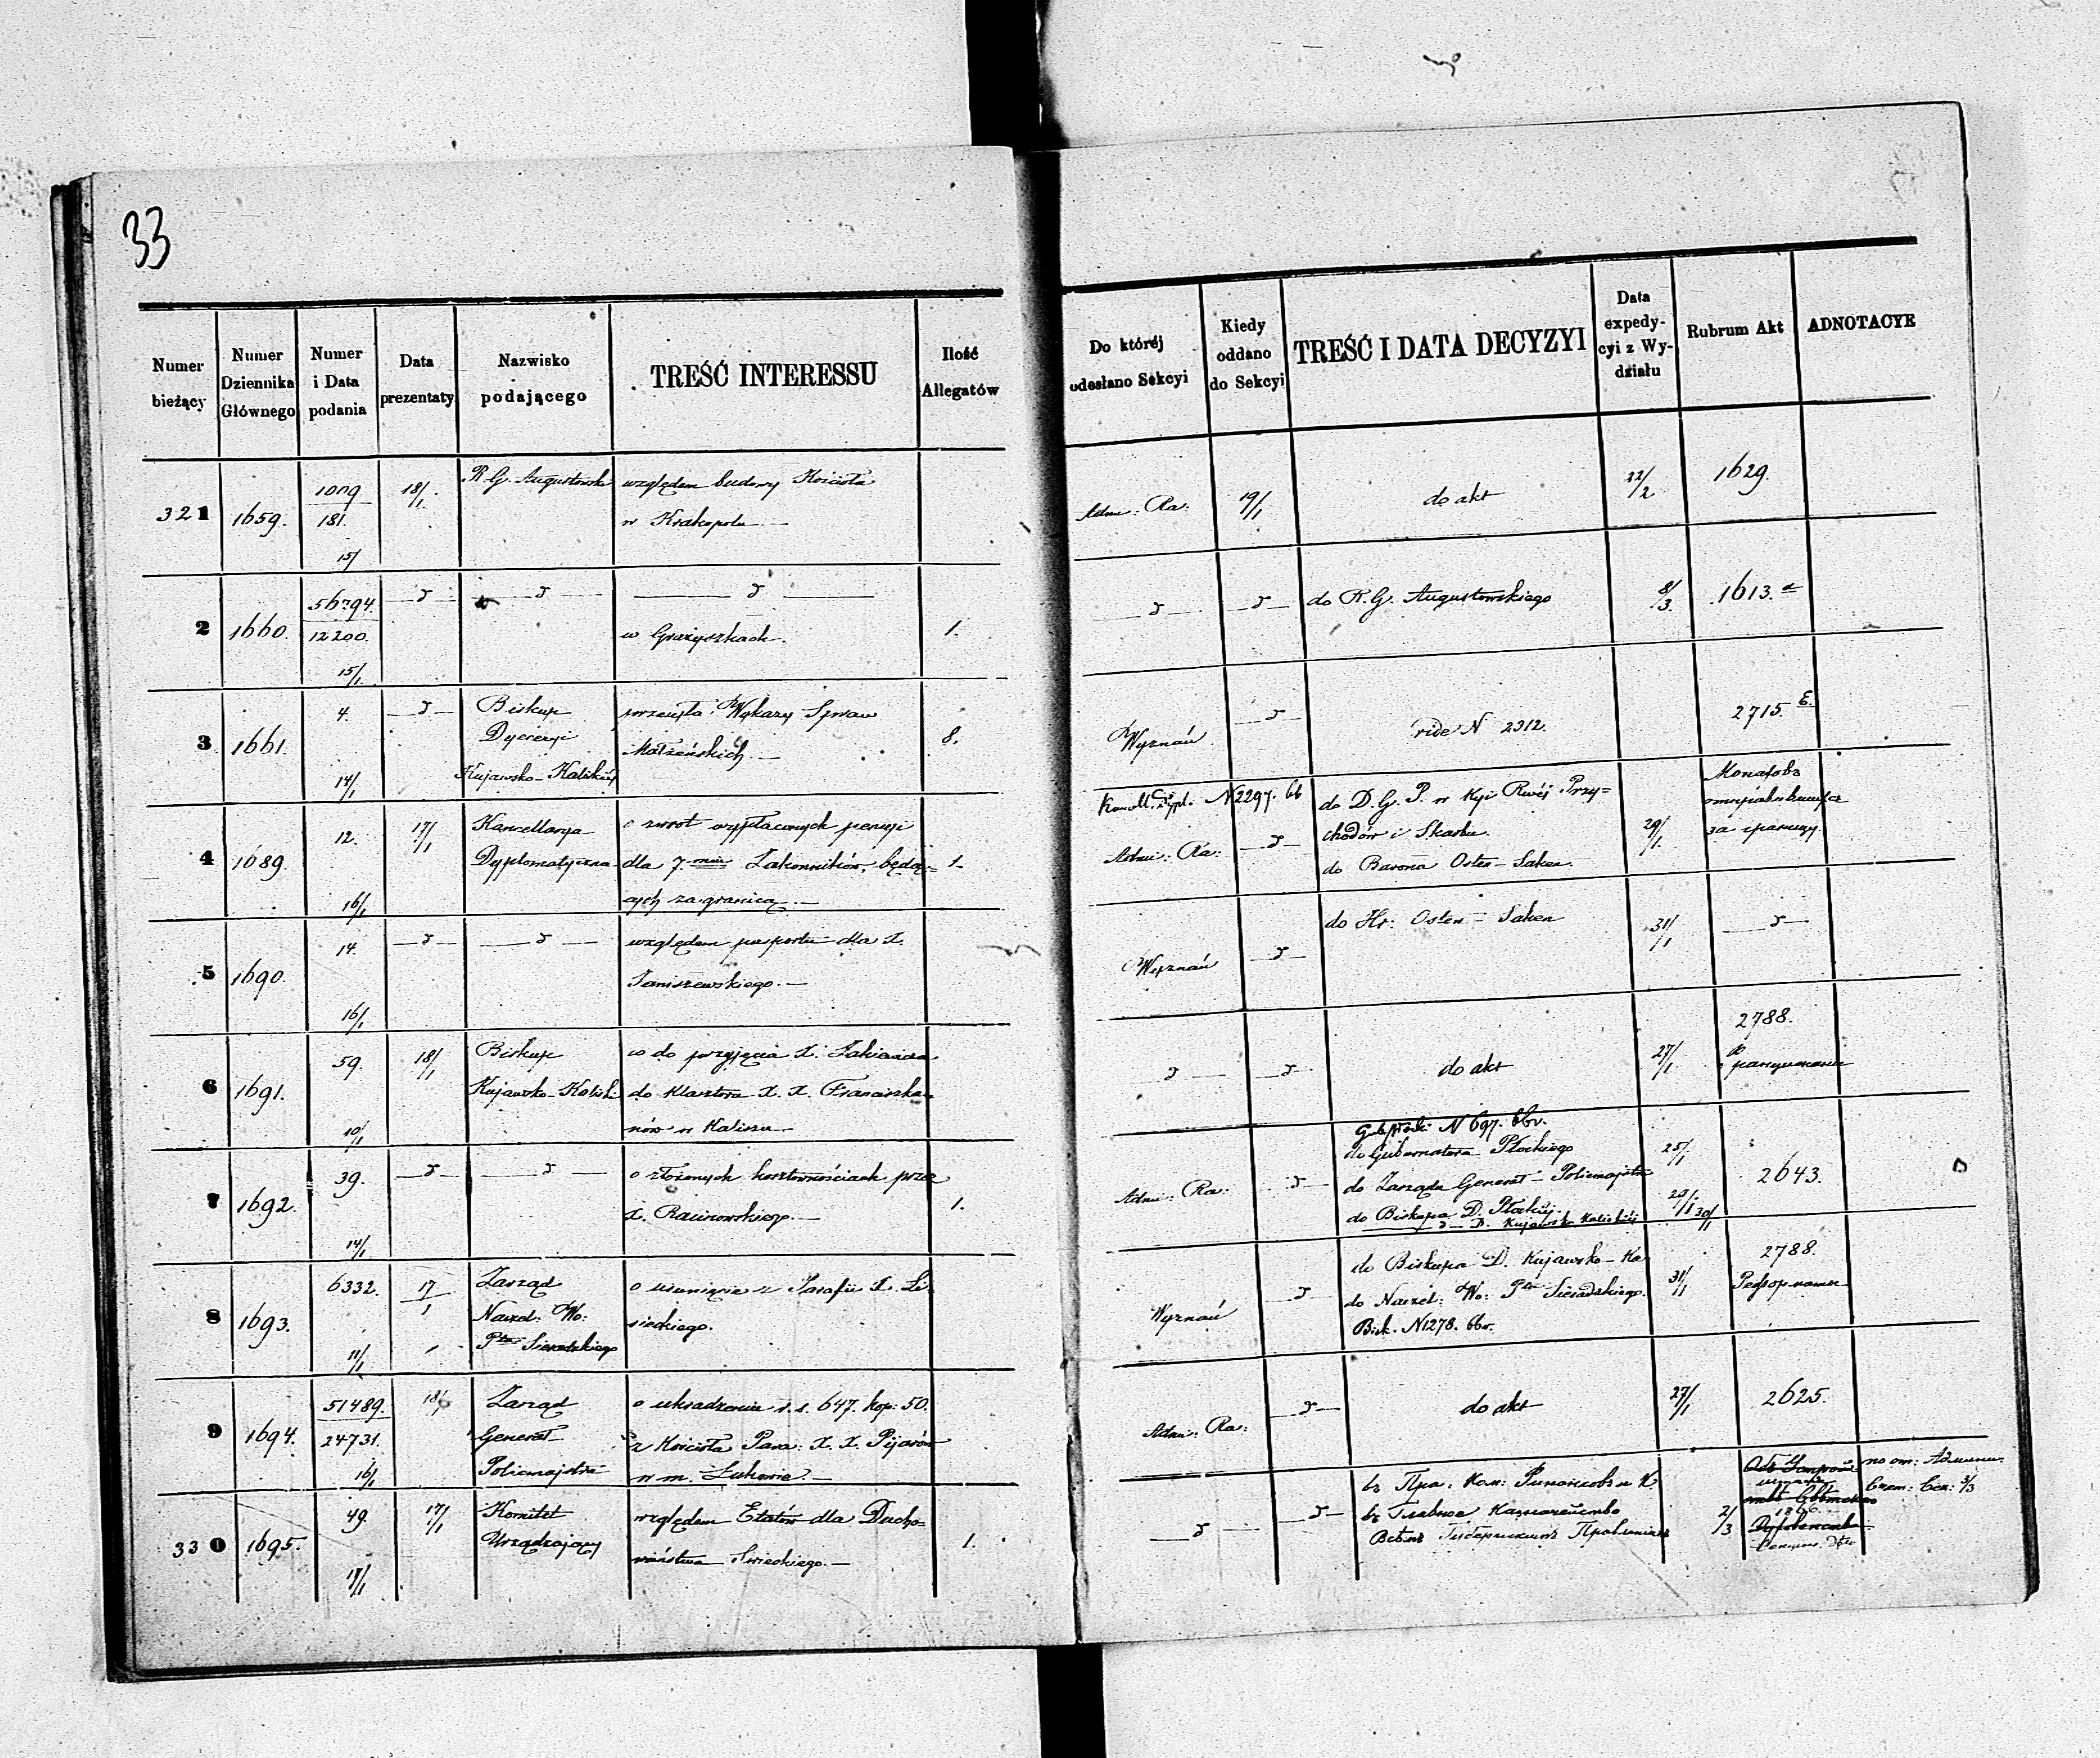 33
Numer bieżący
Numer Dziennika Głównego
Numer i Data podania
Data prezentaty
Nazwisko podającego
TREŚĆ INTERESSU
Ilość Allegatów
Do której odesłano Sekcyi
Kiedy oddano do Sekcyi
TREŚĆ I DATA DECYZYI
Data expedycyi z Wydziału
Rubrum Akt
ADNOTACYE
321 1659. 181. 15/ 18/1. R. G. Augustowski względem budowy Kościoła
w Krakopolu —
Adm: Ra: 19/1 do akt 22/2 1629.
2 1660. 12200. 15/1.
w Grażyszkach. 1.
do R. G. Augustowskiego 8/3. 1613.
3 1661. 4. 14/1 Biskup przesyła Wykazy Spraw
Dyecezyi Małżeńskich. — 8.
Kujawsko-Kaliskiej
Wyznań vide N 2312. 2715.
4 1689. 12. 16/1 17/1 Kancellarya o zwrot wypłaconych pensyi
Dyplomatyczna dla 7. Zakonników, będą= 1.
cych za granicą. —
N 2297.
Adm: Ra: do D. G. P. w Kyi Rwéj Przy=
chodów i Skarbu. 29/1.
do Barona Osten-Saken.
5 1690. 14. 16/1 względem paszportu dla X.
Janiszewskiego. —
Wyznań do Hr: Osten-Saken 31/1
6 1691. 59. 10/1 18/1 Biskup co do przyjęcia X.
Kujawsko-Kalisk: do klasztoru X. X. Franciszka-
nów w Kaliszu —
do akt 27/1 2788.
7 1692. 39. 14/1 o złożonych kosztownościach przez
X. Racinowskiego. — 1.
N 697.
Adm: Ra: do Gubernatora Płockiego 25/1
do Zarządu Generał-Policmajstra 29/1 2643.
do Biskupa D. Płockiéj 30/1
D. Kujawsko Kaliskiéj
8 1693. 6332. 11/1 17/1 Zarząd o usunięcie z Parafii X. Li-
Naczel: Wo: sieckiego.
Ptu Sieradzkiego
Wyznań do Biskupa D. Kujawsko-Ka 2788.
do Naczel: Wo: Ptu Sieradzkiego. 31/1
Bisk. N 1278.
9 1694. 51489. 24731. 16/1 18/ Zarząd o ukradzeniu r. s. 647. kop: 50.
Generał- z Kościoła Para: X. X. Pijarów
Policmajstra w m. Łukowie. —
Adm: Ra: do akt 27/1 2625.
330 1695. 49. 17/1 17/1 Komitet względem Etatów dla Ducho=
Urządzający wieństwa Swieckiego. — 1.
въ Главное Казначейство 2/3